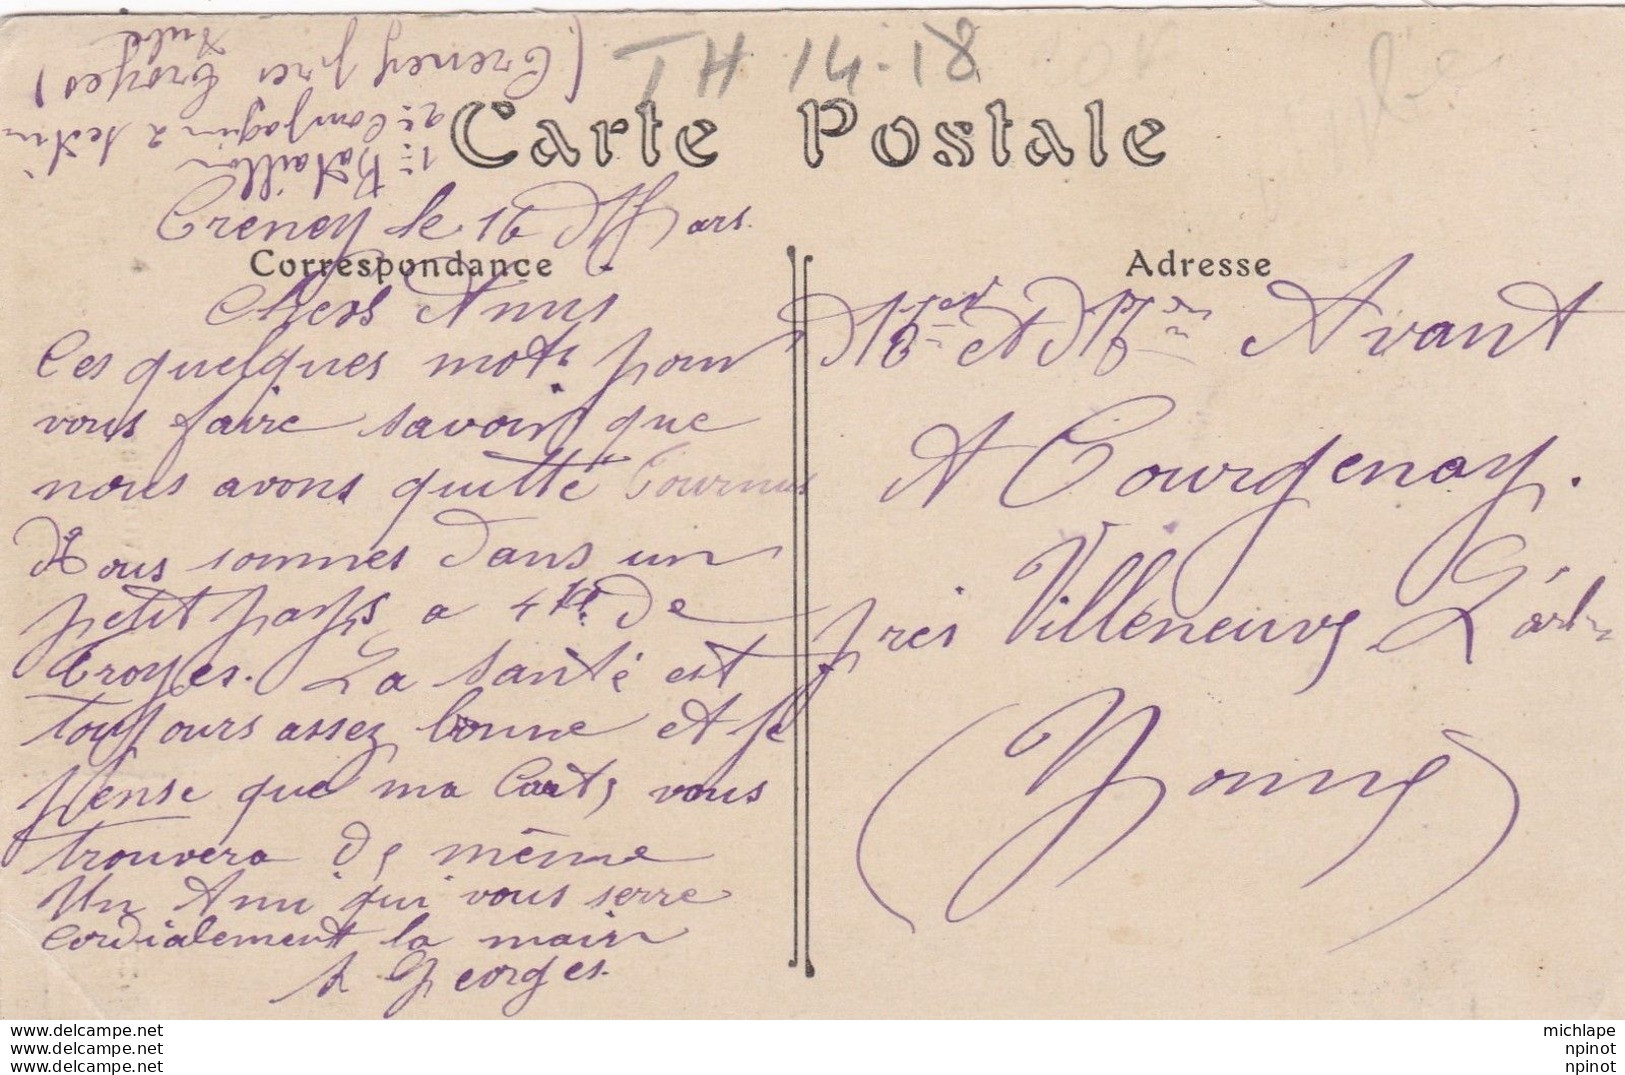 TH 14-18
Carte Postale
1er Bataillon
2e Compagnie
(Creney près Troyes)
Aube
Creney le 16 Mars
Correspondance
Chers Amis
Ces quelques mots pour
vous faire savoir que
nous avons quitté Tournus
Nous sommes dans un
petit pays a 4 K de
Troyes. La santé est
toujours assez bonne et je
pense que ma Carte vous
trouvera de même
Un Ami qui vous serre
Cordialement la main
Georges.
Adresse
Mr et Mme Avant
A Courgenay.
près Villeneuve L'arch
(Yonne)
www.delcampe.net
www.delcampe.net
www.delcampe.net
michlape
npinot
npinot